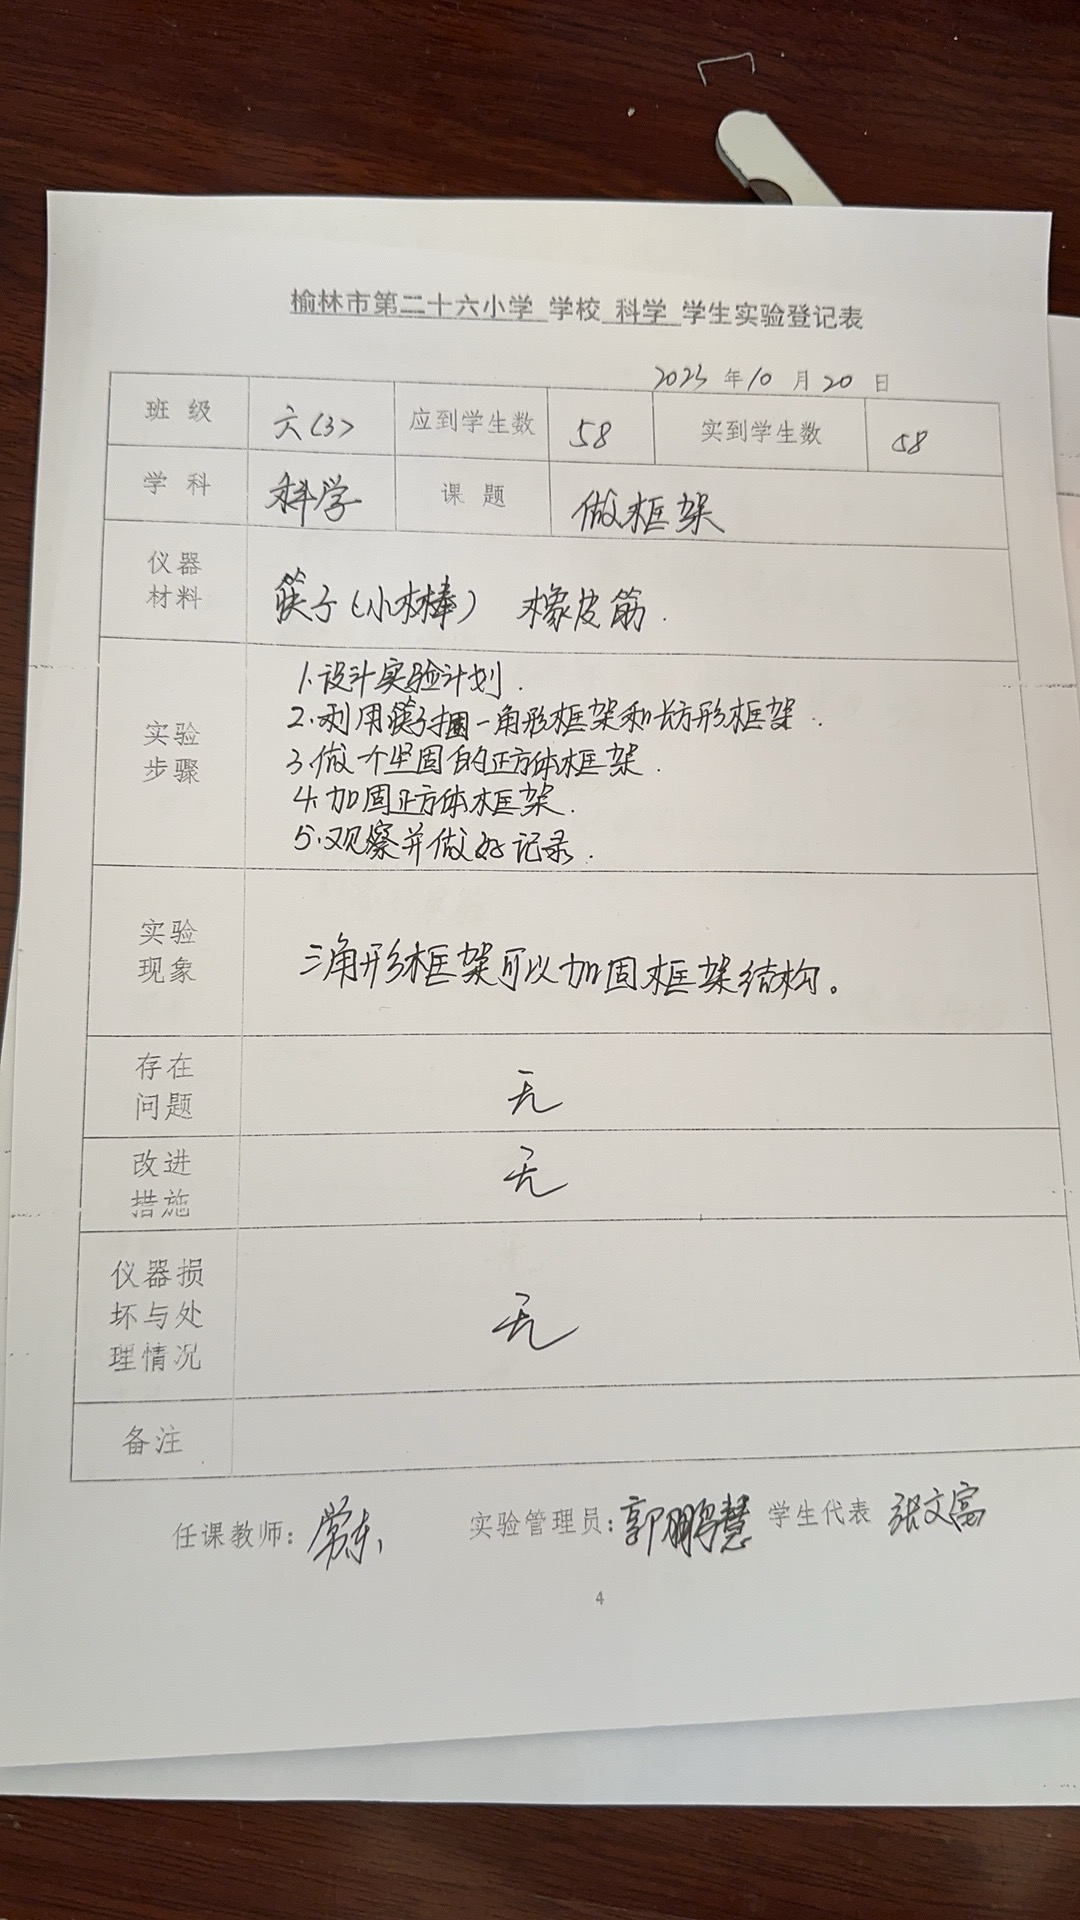 榆林市第二十六小学 学校 科学 学生实验登记表
2023 年 10 月 20 日
班 级 六(3) 应到学生数 58 实到学生数 58
学 科 科学 课 题 做框架
仪器
材料
筷子(小木棒) 橡皮筋.
实验
步骤
1.设计实验计划.
2.利用筷子捆一角形框架和长方形框架.
3.做个坚固的正方体框架.
4.加固正方体框架.
5.观察并做好记录.
实验
现象
三角形框架可以加固框架结构。
存在
问题
无
改进
措施
无
仪器损
坏与处
理情况
无
备注
任课教师: 实验管理员:郭鹏慧 学生代表 张文富
4